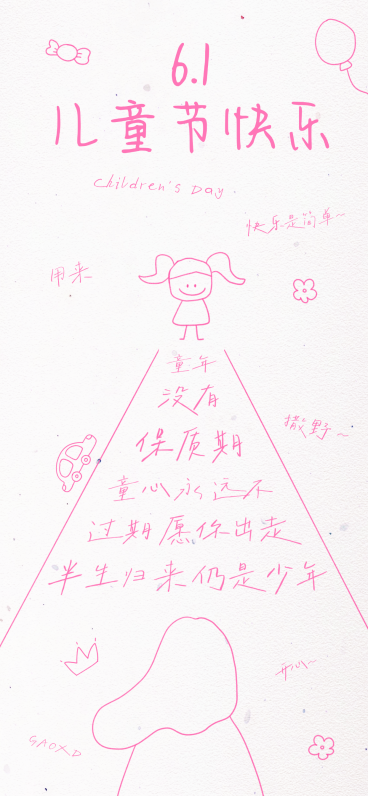 6.1
儿童节快乐
Children's Day.
快乐是简单~
用来
童年
没有
撒野~
保质期
童心永远不
过期愿你出走
半生归来仍是少年
开心~
GAOXD